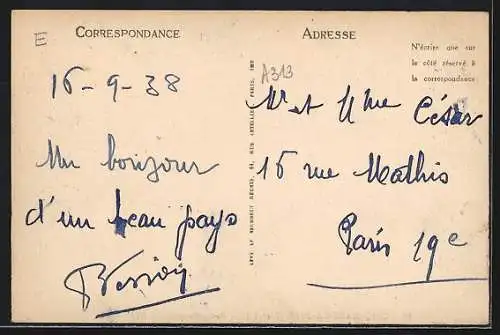 E
CORRESPONDANCE
ADRESSE
N'écrire que sur
le côté réservé à
la correspondance
A313
16-9-38
Mr et Mme César
Un bonjour
16 rue Mathis
d'un beau pays
Paris 19e